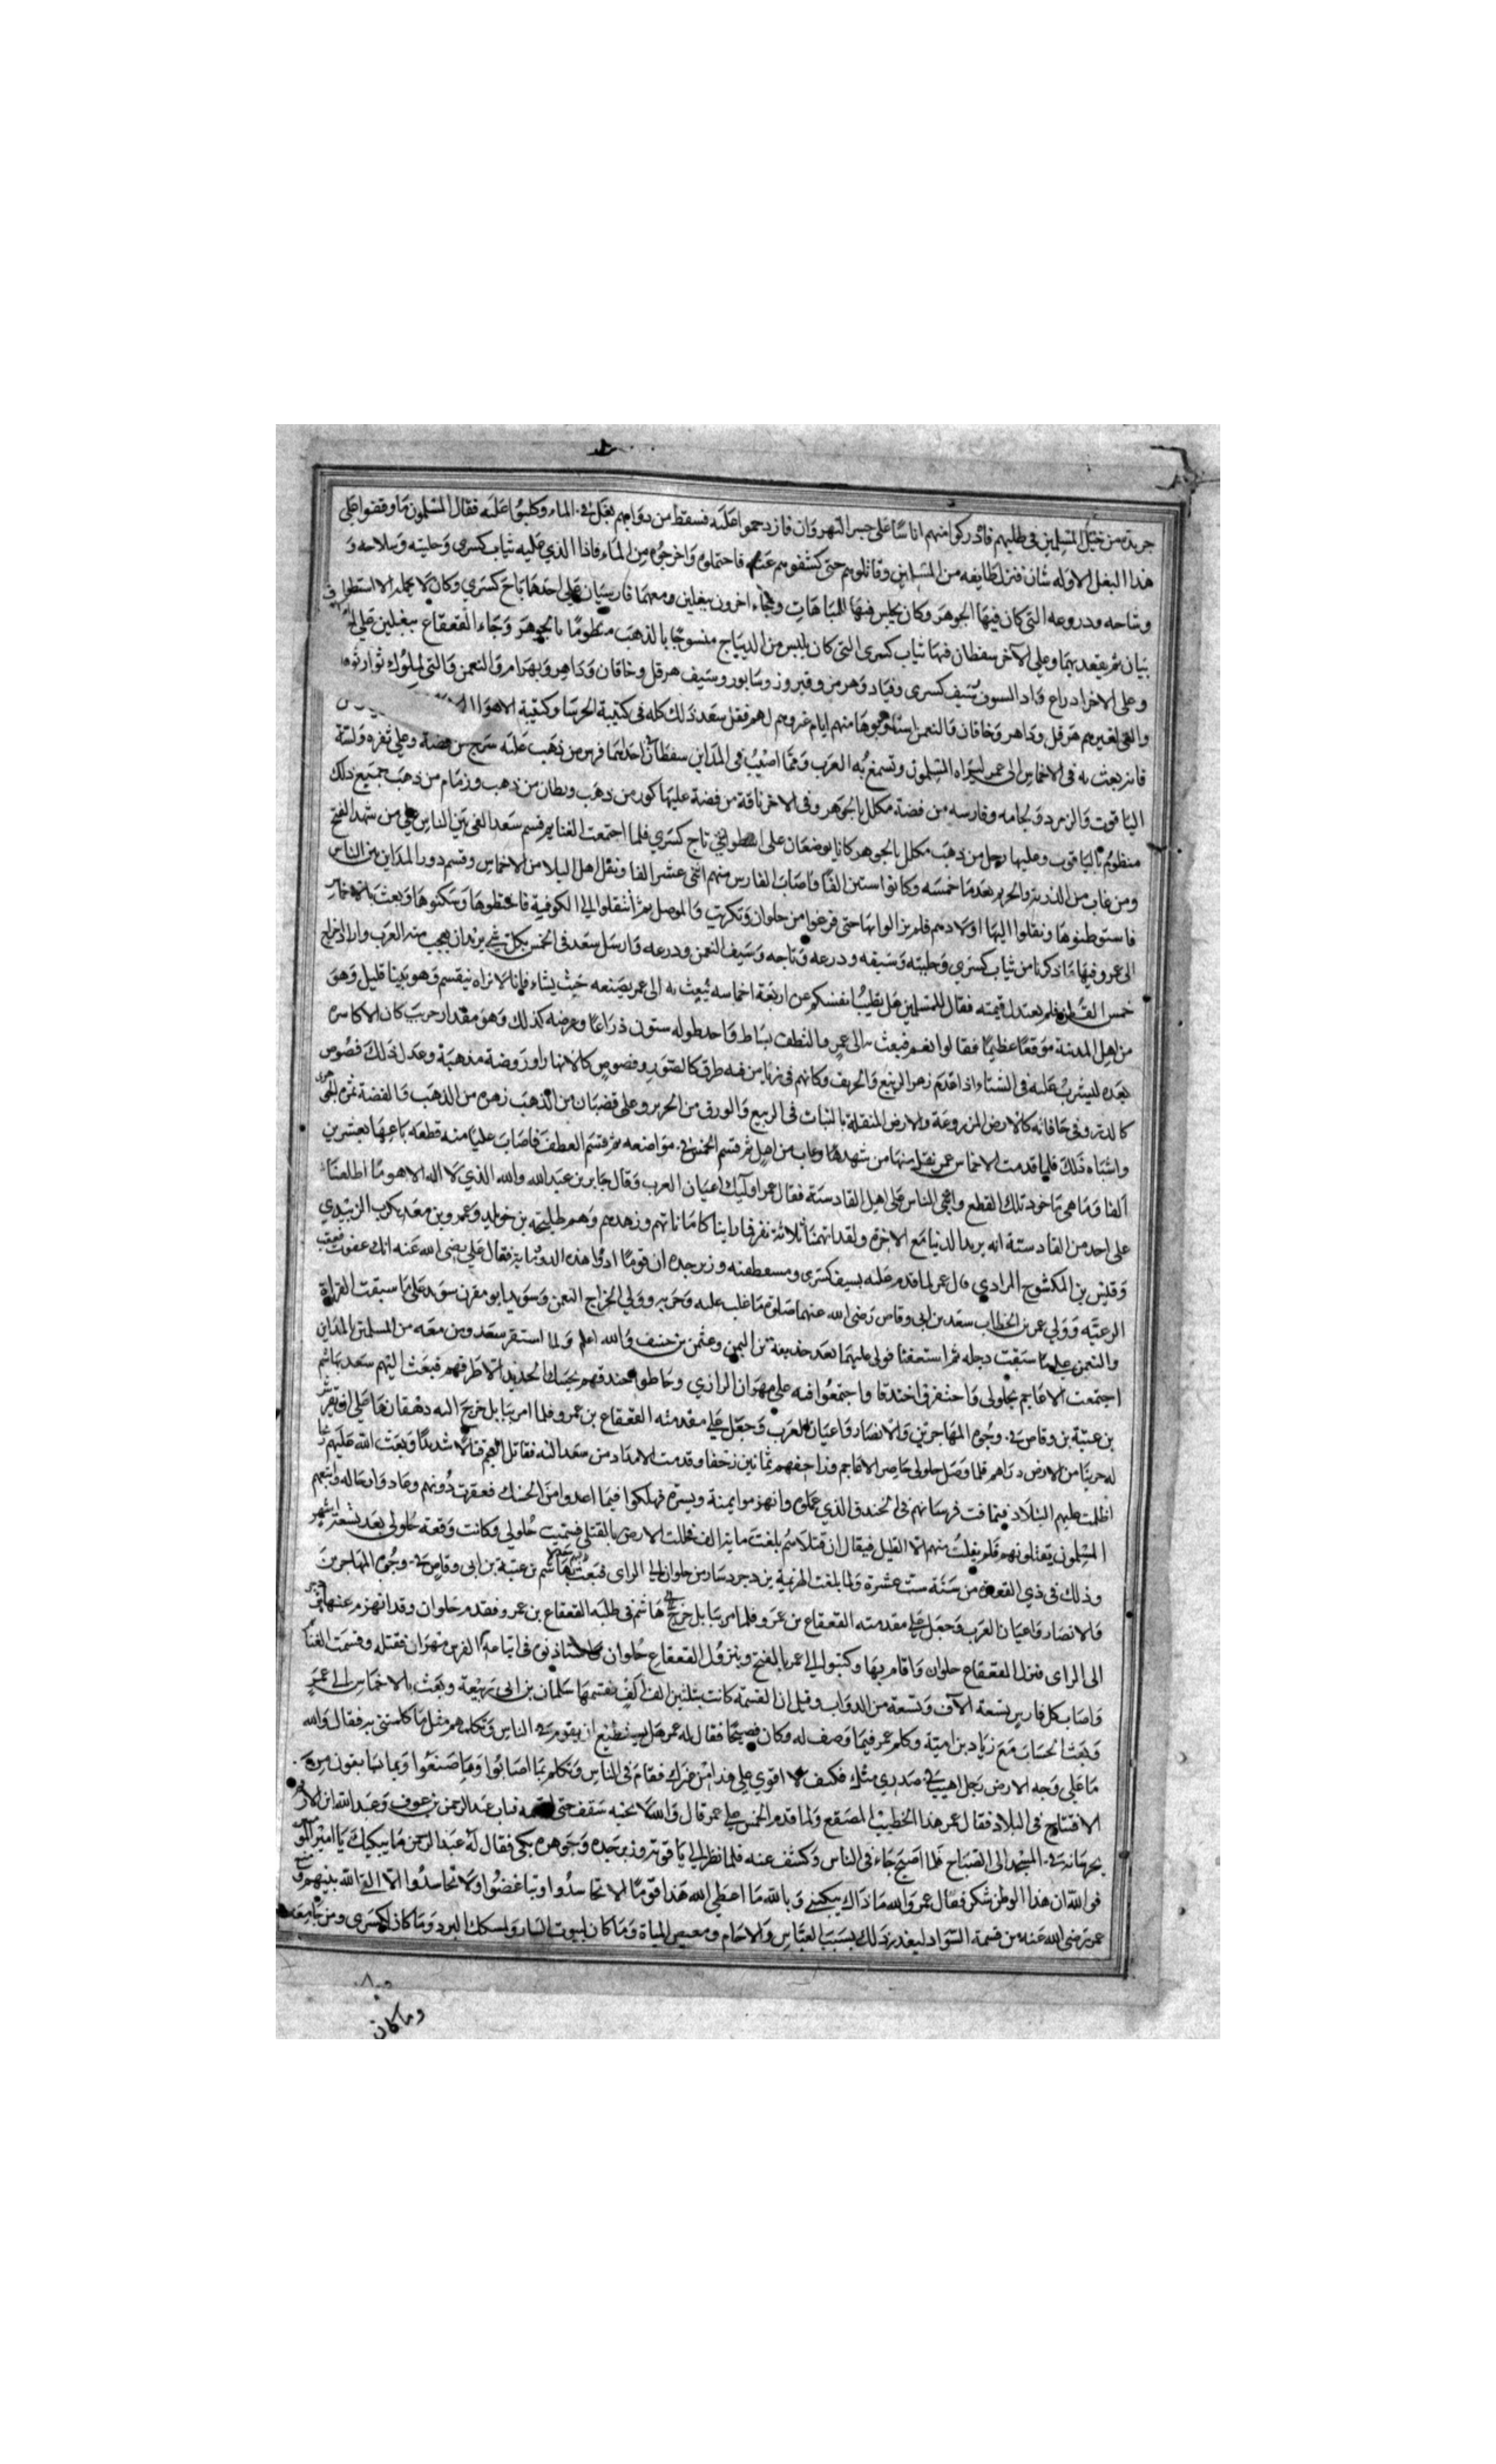 جريدة من خيل المسلمين فى طلبهم فادركوا منهم اناسًا على جسر النهروان فازدحموا عليه فسقط من دوابهم بغل فى الماء وكلبوا عليه فقال المسلمون ما وقفوا على
هذا البغل الا وله شان فنزل طايفه من المسلمين وقاتلوهم حتى كشفوهم عنه فاحتملوه واخرجوه من الماء فاذا الذي عليه ثياب كسرى وحليته وسلاحه و
وشاحه ودروعه التى كان فيها الجوهر وكان يجلس فيها للمباهات وجاء اخرون ببغلين ومعهما فارسيان على احدهما تاج كسرى وكان لا يحمله الا اسطوا
وعلى الاخر سفطان فيها ثياب كسرى التى كان يلبس من الديباج منسوجًا بالذهب منظومًا بالجوهر وجاء القعقاع ببغلين على
وعلى الاخر ادراع كسرى وقباد وهرمز وفيروز وسابور وسيف هرقل وخاقان وداهر وبهرام والنعمن والتى للملوك توارثوه
والتى لغيرهم هرقل وداهر وخاقان والنعمن منهم ايام غزوهم لهم فنقل سعد ذلك كله فى كتيبة الخرسا وكتيبة الاهوا
فانه بعث به فى الاخماس الى عمر ليراه المسلمون وتسمع به العرب ومما اصيب فى المداين سفطان احدهما فرس من ذهب عليه سرج من فضة وعلى ثغره ولبته
الياقوت والزمرد ولجامه وفارسه من فضة مكلل بالجوهر وفى الاخر ناقة من فضة عليها كور من ذهب وبطان من ذهب وزمام من ذهب جميع ذلك
منظوم بالياقوت وعليها رجل من ذهب مكلل بالجوهر كانا يوضعان على تاج كسرى فلما اجتمعت الغنايم قسم سعد الفى بين الناس على من شهد الفتح
بعدما خمسه وكانوا ستين الفًا واصاب الفارس منهم اثنى عشر الفا ونفل اهل البلا من الاخماس وقسم دور المداين بين الناس
فاستوطنوها ونقلوا اليها اولادهم فلم يزالوا بها حتى فرغوا من حلوان وتكريت والموصل ثم انتقلوا الى الكوفة فاختطوها وسكنوها وبعث بالاخماس
الى عمر وفيها ما ذكرنا من ثياب كسرى وحليته وسيفه ودرعه وتاجه وسيف النعمن ودرعه وارسل سعد فى الخمس بكل شي يريد ان يعجب منه العرب واراد اخراج
خمس القطف فلم يعتدل قيمته فقال للمسلمين هل تطيب انفسكم عن اربعة اخماسه نبعث به الى عمر يصنعه حيث يشاء فانا لا نراه ينقسم وهو بيننا قليل وهو
من اهل المدينة موقعًا عظيمًا فقالوا نعم فبعث به الى عمر والقطف بساط واحد طوله ستون ذراعًا وعرضه كذلك وهو مقدار جريب كان الاكاسرة
تعده ليشرب عليه فى الشتاء اذا عدم زهر الربيع والخريف وكانهم فى رياض فيه طرق كالصور وفصوص كالانهار وروضة مذهبة وعدل ذلك فصوص
كالدر وفى حافاته كالارض المزروعة والارض المبقلة بالنبات فى الربيع والورق من الحرير وعلى قضبان من الذهب زهره من الذهب والفضة ثمره
واشباه ذلك فلما قدمت الاخماس عمر نفل منها من شهدها وغاب من اهل ثم قسم الخمس فى مواضعه ثم قسم القطف فاصاب عليًا منه قطعه باعها بعشرين
الفًا وما هى باجود تلك القطع واثنى الناس على اهل القادسية فقال عمر اوليك اعيان العرب وقال جابر بن عبد الله والله الذي لا اله الا هو ما اطلعنا
على احد من القادسية انه يريد الدنيا مع الاخرة ولقد اتهمنا ثلاثة نفر فما راينا كاماناتهم وزهدهم وهم طليحة بن خويلد وعمرو بن معدي كرب الزبيدي
وقيس بن المكشوح المرادي قال عمر لما قدم عليه بسيف كسرى ومنطقته وزبرجده ان قومًا ادوا هذه الذووا امانه فقال على رضى الله عنه انك عففت فعفت
الرعيّة وولي عمر بن الخطاب سعد بن ابى وقاص رضى الله عنهما صلوة ما غلب عليه وحربه وولي الخراج النعمن وسويدا ابنو مقرن سويد على ما سقت الفراة
والنعمن على ما سقت دجله ثم استعفيا فولى عليهما بعد حذيفة بن اليمن وعثمن بن حنيف والله اعلم ولما استقر سعد ومن معه من المسلمين بالمداين
اجتمعت الاعاجم بجلولى واحتفر فى اخندقا واجتمعوا فيه على مهران الرازي وحاطوا خندقهم بحسك الحديد الا طرقهم فبعث اليهم سعد هاشم
بن عتبة بن وقاص فى وجوه المهاجرين والانصار واعيان العرب وجعل على مقدمته القعقاع بن عمرو فلما امر ببابل خرج اليه دهقانها
له جريبًا من الارض دراهم فلما وصل جلولى حاصر الاعاجم وزاحفهم ثمانين زحفا وقدمت الامداد من سعد اليه فقاتلهم قتالًا شديدًا وبعث الله عليهم
اظلمت عليهم البلاد فتهافت فرسانهم فى الخندق الذي عملوه وانهزموا يمنة ويسرة فهلكوا فيما اعدوا من الحسك فعقرت دوابهم وعادوا رحاله واتبعهم
المسلمون يقتلونهم فلم يفلت منهم الا القليل فيقال ان قتلاهم بلغت ماية الف فجللت الارض بالقتلى فسميت جلولى وكانت وقعة جلولى بعد تسعة اشهر
وذلك فى ذي القعدة من سنة ست عشرة ولما بلغت الهزيمة يزدجرد سار من حلوان الى الراى فبعث هاشم بن عتبة بن ابى وقاص فى وجوه المهاجرين
والانصار واعيان العرب وجعل على مقدمته القعقاع بن عمرو فلما مر ببابل خرج هاشم فى طلبه القعقاع بن عمرو فقدم حلوان وقد انهزم عنها
الى الراى فنزل القعقاع حلوان واقام بها وكتبوا الى عمر بالفتح وبنزول القعقاع حلوان واستاذنوه فى اتباعه الفرس مهران فقتله وقسمت الغنا
واصاب كل فارس تسعة الاف وتسعة من الدواب وقيل ان القسمة كانت بثلثين الف الف فقسمها سلمان بن ابى ربيعة وبعث بالاخماس الى عمر
وبعث الحساب مع زياد بن امية وكلم عمر فيما وصف له وكان فصيحًا فقال له عمر هل يستطيع ان تقوم فى الناس وتكلمهم مثل ما كلمتنى به فقال والله
ما على وجه الارض رجل اهيب فى صدري منك فكيف لا اقوي على هذا من غيرك فقام فى الناس وتكلم بما اصابوا وما صنعوا وبما
الافتتاح فى البلاد فقال عمر هذا الخطيب المصقع ولما قدم الخمس على عمر قال والله لا نجنه سقف حتى اقسمه فبات عبد الرحمن بن عوف وعبد الله ابن الارقم
يحرسانه فى المسجد الى الصباح فلما اصبح جاء فى الناس وكشف عنه فلما نظر الى ياقوته وزبرجده وجوهره بكى فقال له عبد الرحمن ما يبكيك يا امير المومنين
فوالله ان هذا لموطن شكر فقال عمر والله ما ذاك يبكيني وبالله ما اعطي الله هذا قومًا الا تحاسدوا وتباغضوا ولا تحاسدوا الا القى الله بينهم
عمر رضى الله عنه من قسمة السواد لتعذر ذلك بسبب والاجام ومغيض المياة وما كان لبيوت النار ولسكك البرد وما كان لكسرى ومن جامعه
وما كان